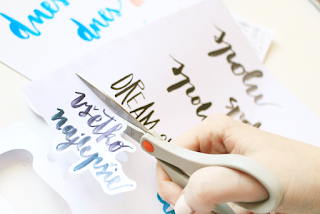 dnes
dnes
DREAM
spolu
všetko
najlepšie